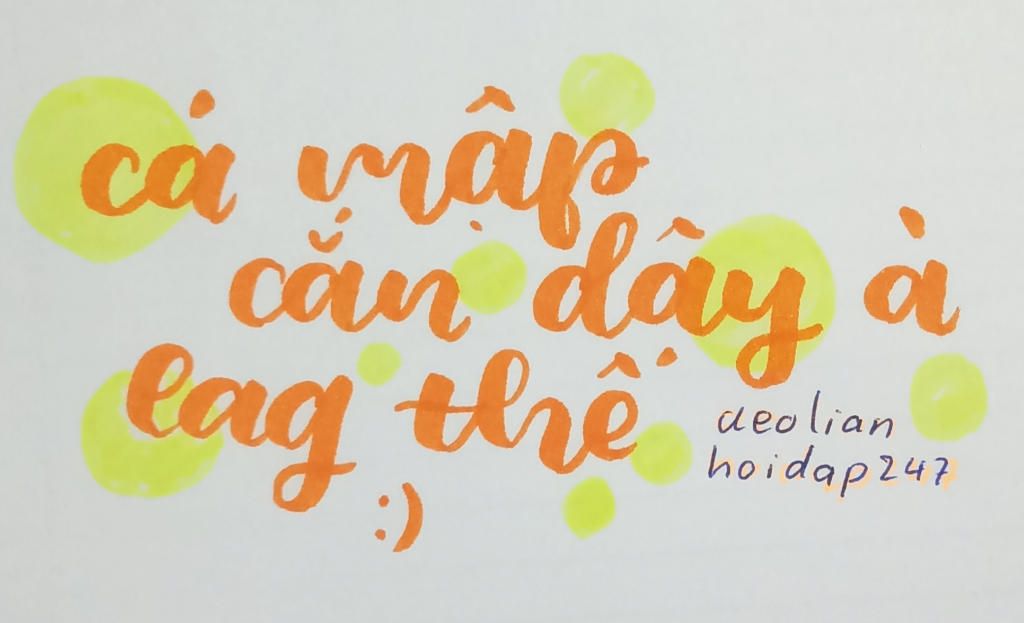 cá mập
cắn dây à
lag thế
:)
aeolian
hoidap247